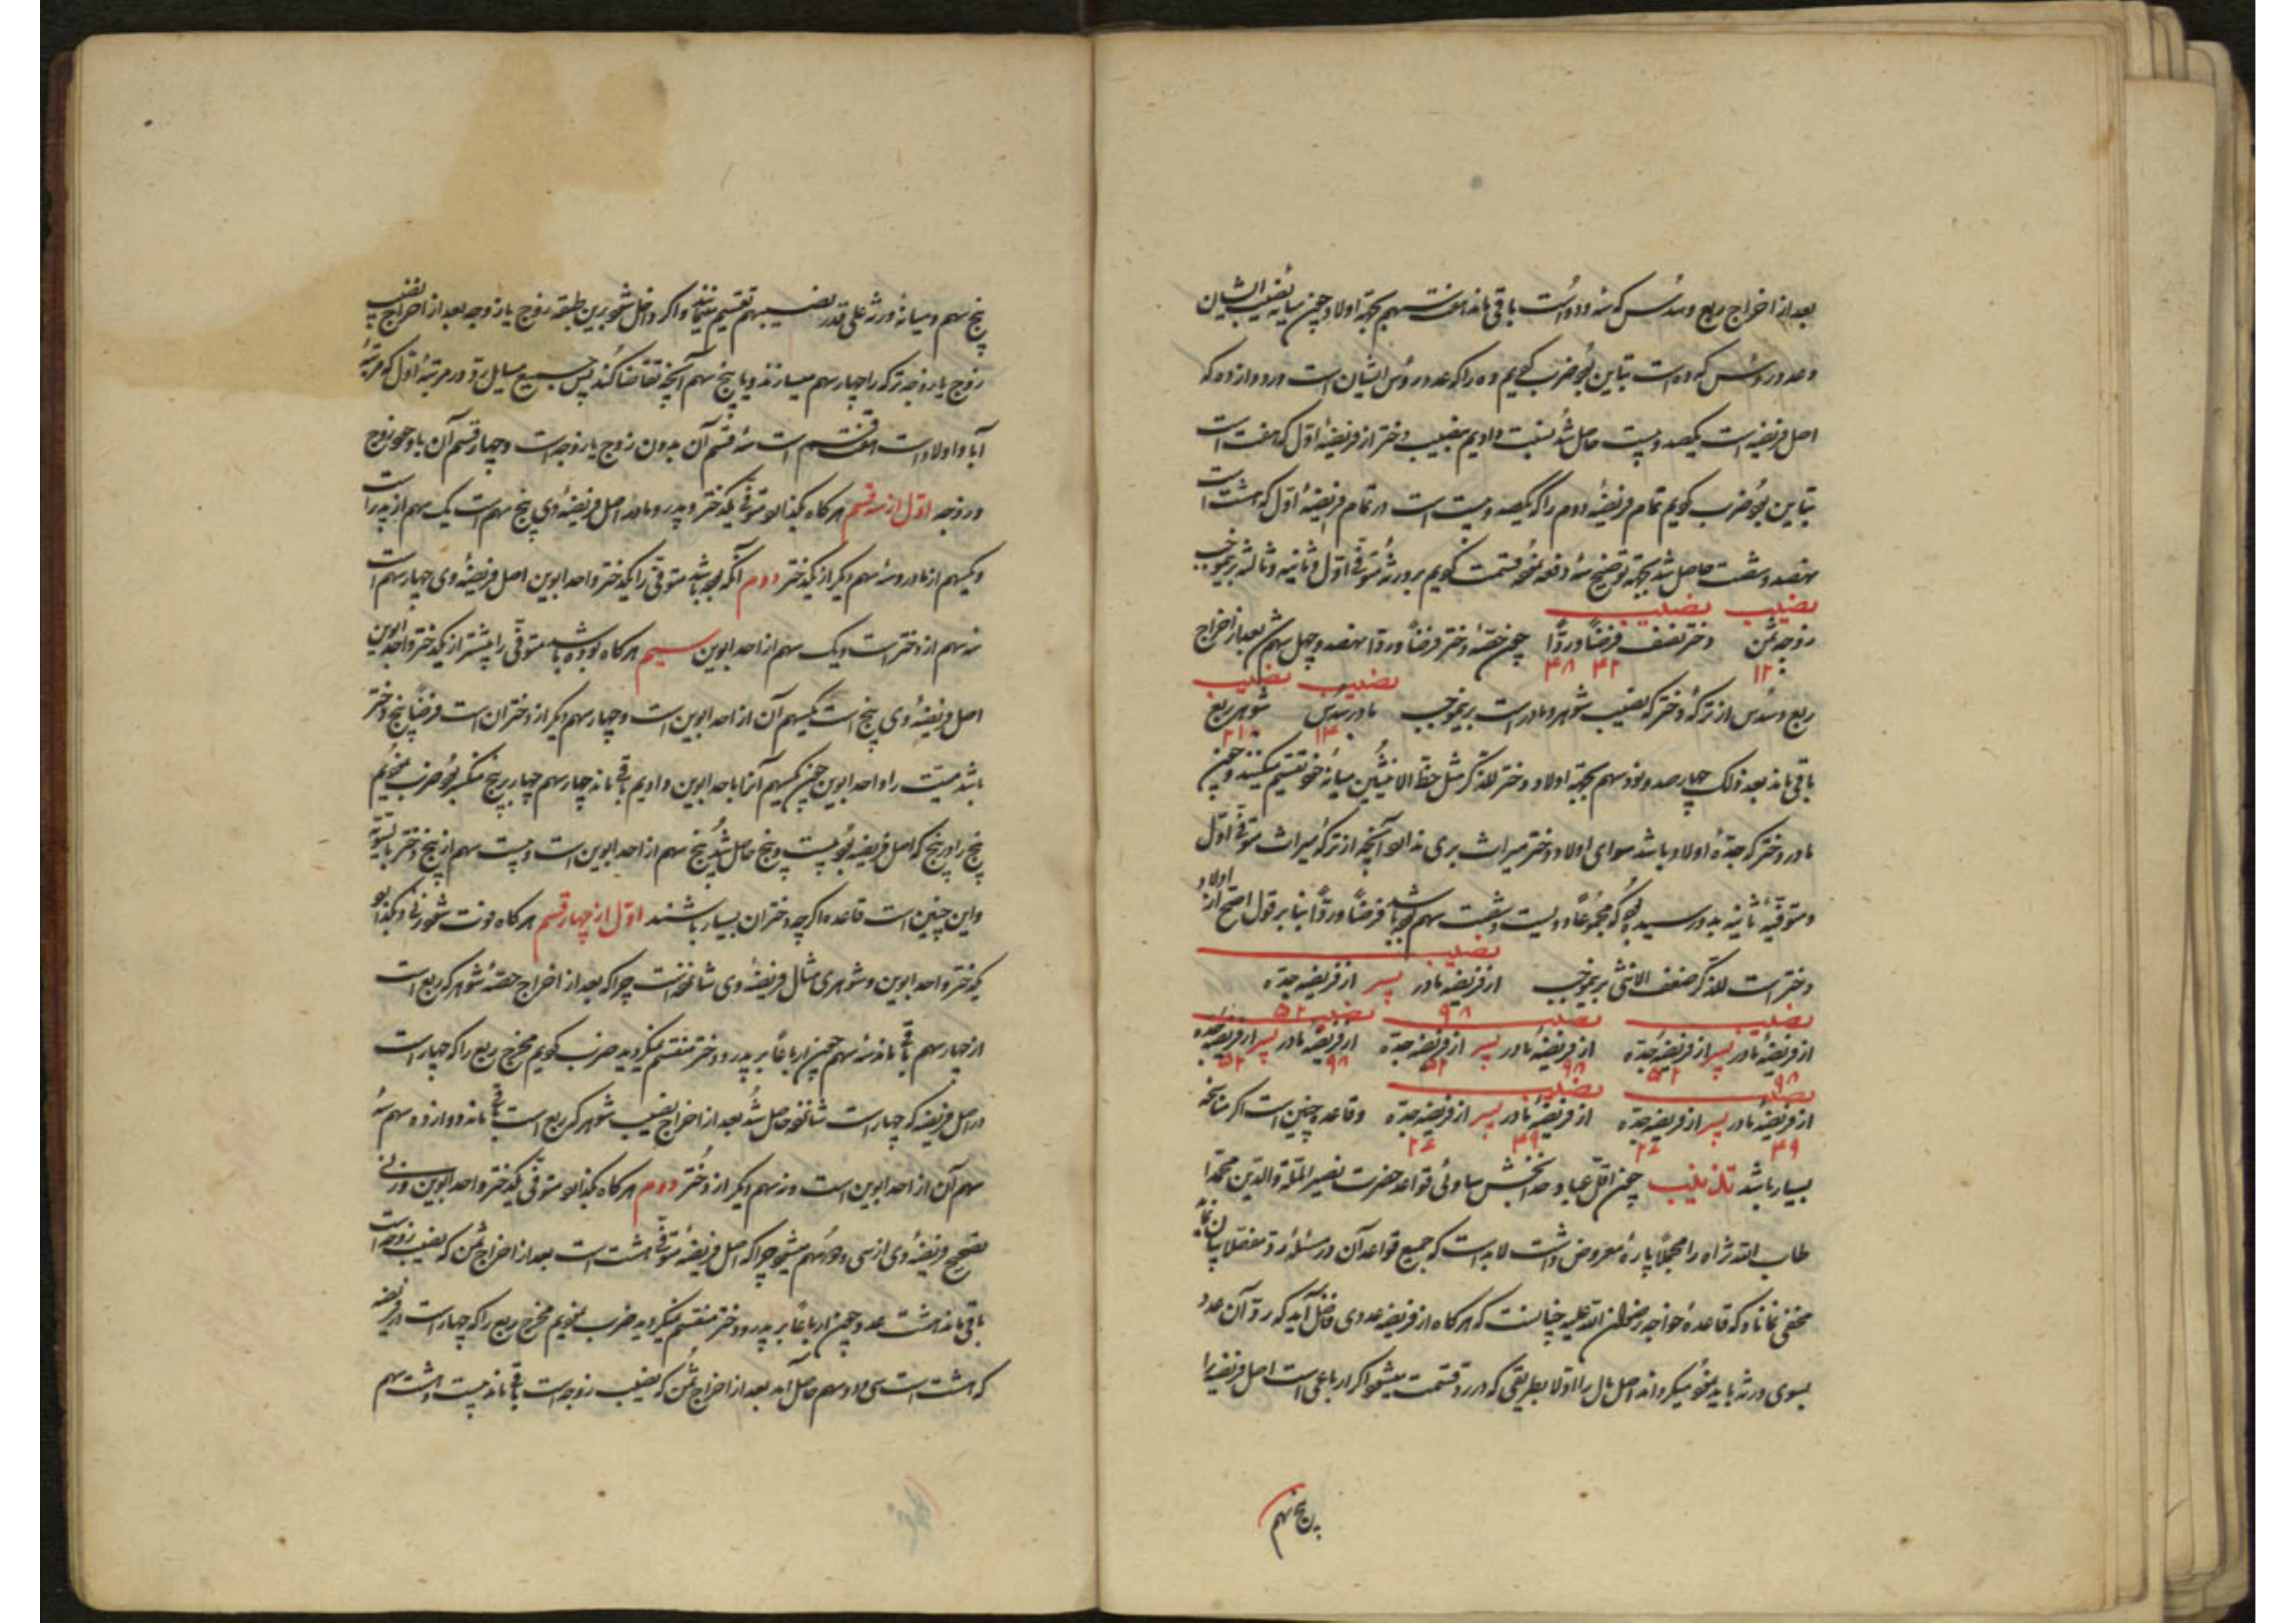 بعد از اخراج ربع و سدس که سه و دو است باقی ماند هفت سهم بجهة اولاد چون میانه نصیب ایشان
و عدد رؤس که ده است تباین بود ضرب کردیم ده را که عدد رؤس ایشان است در دوازده که
اصل فریضه است یکصد و بیست حاصل شد نسبت دادیم بنصیب دختر از فریضهٔ اول که هفت است
تباین بود ضرب کردیم تمام فریضهٔ دوم را که یکصد و بیست است در تمام فریضهٔ اول که هشت است
نهصد و شصت حاصل شد بجهة توضیح سه دفعه نموده قسمت کردیم بر ورثهٔ متوفی اول و ثانیه و ثالثه بر یموجب
نصیب نصیب
زوجه ثمن دختر نصف فرضاً و ردّاً چون حصهٔ دختر فرضاً و ردّاً نهصد و چهل سهم بعد از اخراج
۱۲۰ ۴۲ ۴۸
نصیب نصیب
ربع و سدس از ترکهٔ دختر که نصیب شوهر و مادر است بر یموجب مادر سدس شوهر ربع
۱۴ ۲۱۰
باقی ماند بعد ذلک چهارصد و نود سهم بجهة اولاد دختر للذکر مثل حظ الانثیین میانهٔ خود تقسیم میکنند و چون
مادر دختر که جدهٔ اولاد باشد سوای اولاد دختر میراث بری نداند آنچه از ترکهٔ میراث متوفی اول
و متوفیه ثانیه بدو رسیده بود که مجموعاً دویست و شصت سهم بوده باشد فرضاً و ردّاً بنا بر قول اصح از اولاد
نصیب
دختر است للذکر ضعف الانثی بر یموجب از فریضه مادر پسر از فریضه جده
۹۸ ۵۲
نصیب نصیب نصیب
از فریضهٔ مادر پسر از فریضهٔ جده از فریضهٔ مادر پسر از فریضه جده از فریضهٔ مادر پسر از فریضهٔ جده
۹۸ ۵۲ ۹۸ ۵۲ ۹۸ ۵۲
نصیب نصیب
از فریضهٔ مادر پسر از فریضه جده از فریضهٔ مادر پسر از فریضه جده و قاعده چنین است اگر مناسخه
۴۹ ۲۶ ۴۹ ۲۶
بسیار باشد تذنیب چون اقل عباد خدابخش ساوئی قواعد حضرت نصیر الملة و الدین محمد را
طاب الله ثراه را مجملاً پارهٔ معروض داشت لابد است که جمیع قواعد آن در مسئلهٔ رد مفصلاً بیان نماید
مخفی نماناد که قاعدهٔ خواجه رضوان الله علیه چنانست که هرگاه از فریضه عددی فاضل آید که رد آن عدد
بسوی ورثه باید نمود میگرداند اصل مال را اولا بطریقی که در رد قسمت میشود اگر ارباعی است اصل فریضه را
پنج سهم
پنج سهم و میانهٔ ورثه علی قدر نصیبهم تقسیم مینمایند و اگر داخل شود برین طبقه زوج یا زوجه بعد از اخراج نصیب
زوج یا زوجه ترکه را چهار سهم میسازند و یا پنج سهم آنچه تقاضا کند پس جمیع مسایل رد در مرتبهٔ اول که مرتبهٔ
آبا و اولاد است هفت قسم است سه قسم آن بدون زوج یا زوجه است و چهار قسم آن با وجود زوج
و زوجه اول از سه قسم هرگاه بگذارد متوفی یکدختر و پدر و مادر اصل فریضهٔ وی پنج سهم است یک سهم از پدر است
و یکسهم از مادر و سه سهم دیگر از یکدختر دوم آنکه بوده باشد متوفی را یکدختر و احد ابوین اصل فریضهٔ وی چهار سهم است
سه سهم از دختر است و یک سهم از احد ابوین سیم هرگاه بوده باشد متوفی را بیشتر از یکدختر و احد ابوین
اصل فریضهٔ وی پنج است یکسهم آن از احد ابوین است و چهار سهم دیگر از دختران است فرضاً پنج دختر
باشد میت را و احد ابوین چون یکسهم آنرا باحد ابوین دادیم باقی ماند چهار سهم چهار بر پنج منکسر بود ضرب نمودیم
پنج را در پنج که اصل فریضه بود بیست و پنج حاصل شد پنج سهم از احد ابوین است و بیست سهم از پنج دختر بالسویة
و این چنین است قاعده اگرچه دختران بسیار باشند اول از چهار قسم هرگاه فوت شود زنی و بگذارد
یکدختر و احد ابوین و شوهری مثال فریضهٔ وی شانزده است چرا که بعد از اخراج حصهٔ شوهر که ربع است
از چهار سهم باقی ماند سه سهم چون ارباعاً بر پدر و دختر منقسم نمیگردید ضرب کردیم مخرج ربع را که چهار است
در اصل فریضه که چهار است شانزده حاصل شد بعد از اخراج نصیب شوهر که ربع است باقی ماند دوازده سهم سه
سهم آن از احد ابوین است و نه سهم دیگر از دختر دوم هرگاه بگذارد متوفی یکدختر و احد ابوین و زنی
تصحیح فریضهٔ وی از سی و دو سهم میشود چرا که اصل فریضهٔ متوفی هشت است بعد از اخراج ثمن که نصیب زوجه است
باقی ماند هشت عدد چون ارباعاً بر پدر و دختر منقسم نمیگردید ضرب نمودیم مخرج ربع را که چهار است در فریضه
که هشت است سی و دو سهم حاصل آمد بعد از اخراج ثمن که نصیب زوجه است باقی ماند بیست و هشت سهم